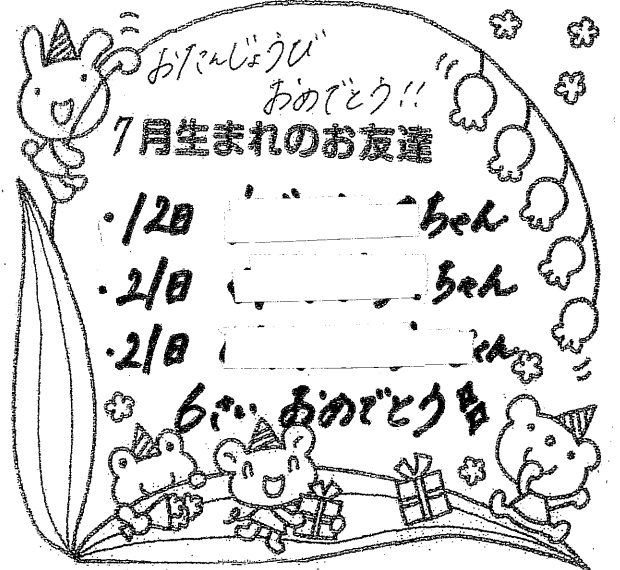 おたんじょうび
おめでとう!!
7月生まれのお友達
・12日 ちゃん
・21日 ちゃん
・21日 ちゃん
6さい おめでとう!!